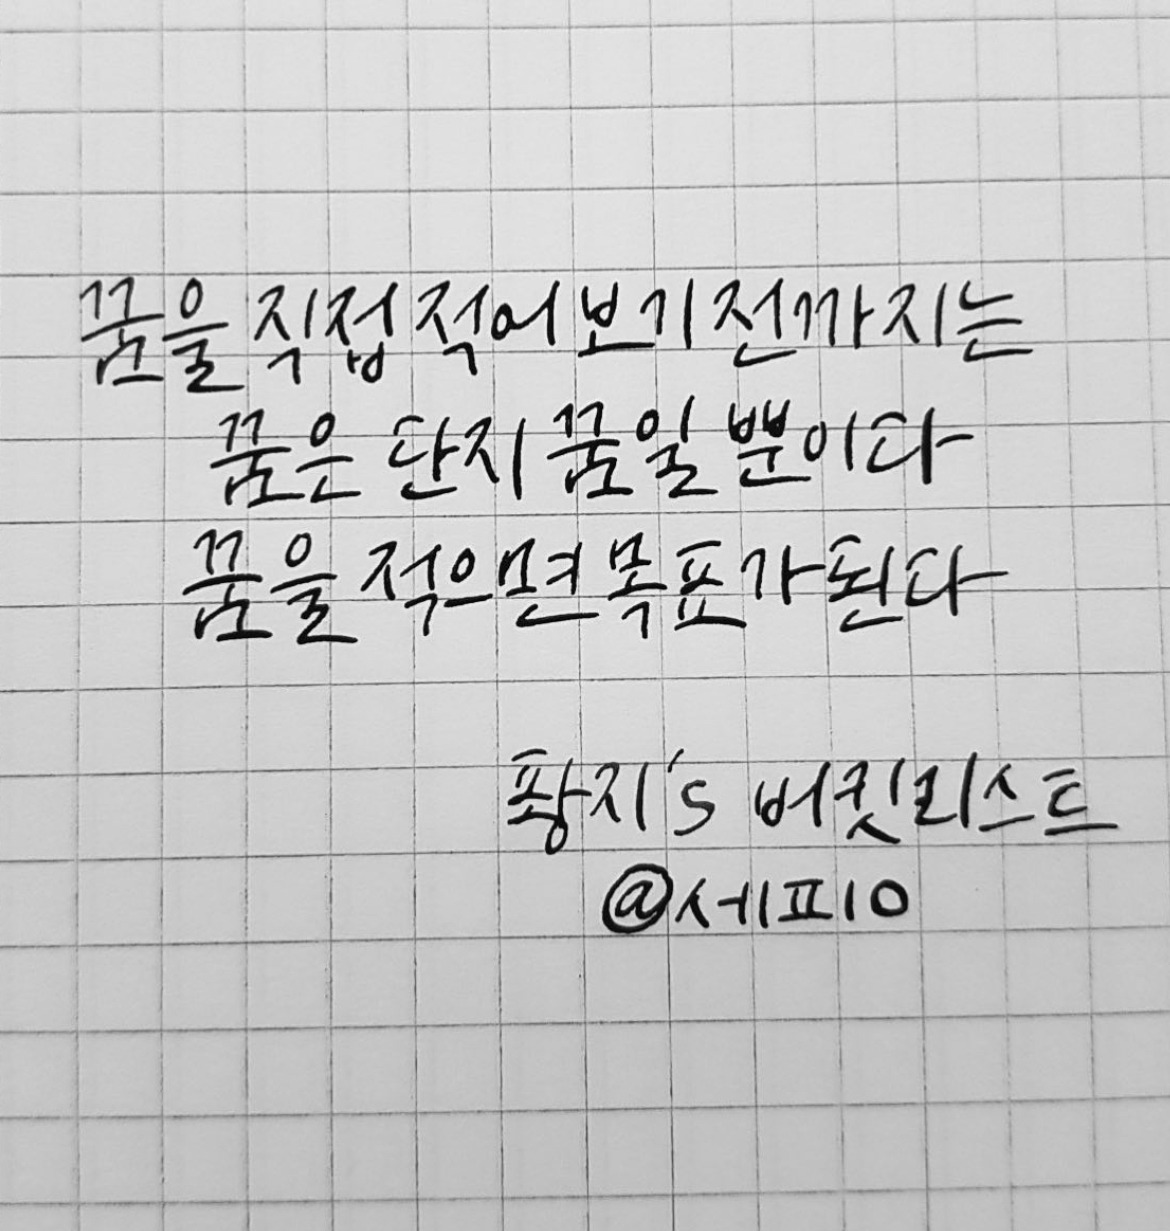 꿈을 직접 적어 보기 전까지는
꿈은 단지 꿈일 뿐이다
꿈을 적으면 목표가 된다
퐝지's 버킷리스트
@세피10